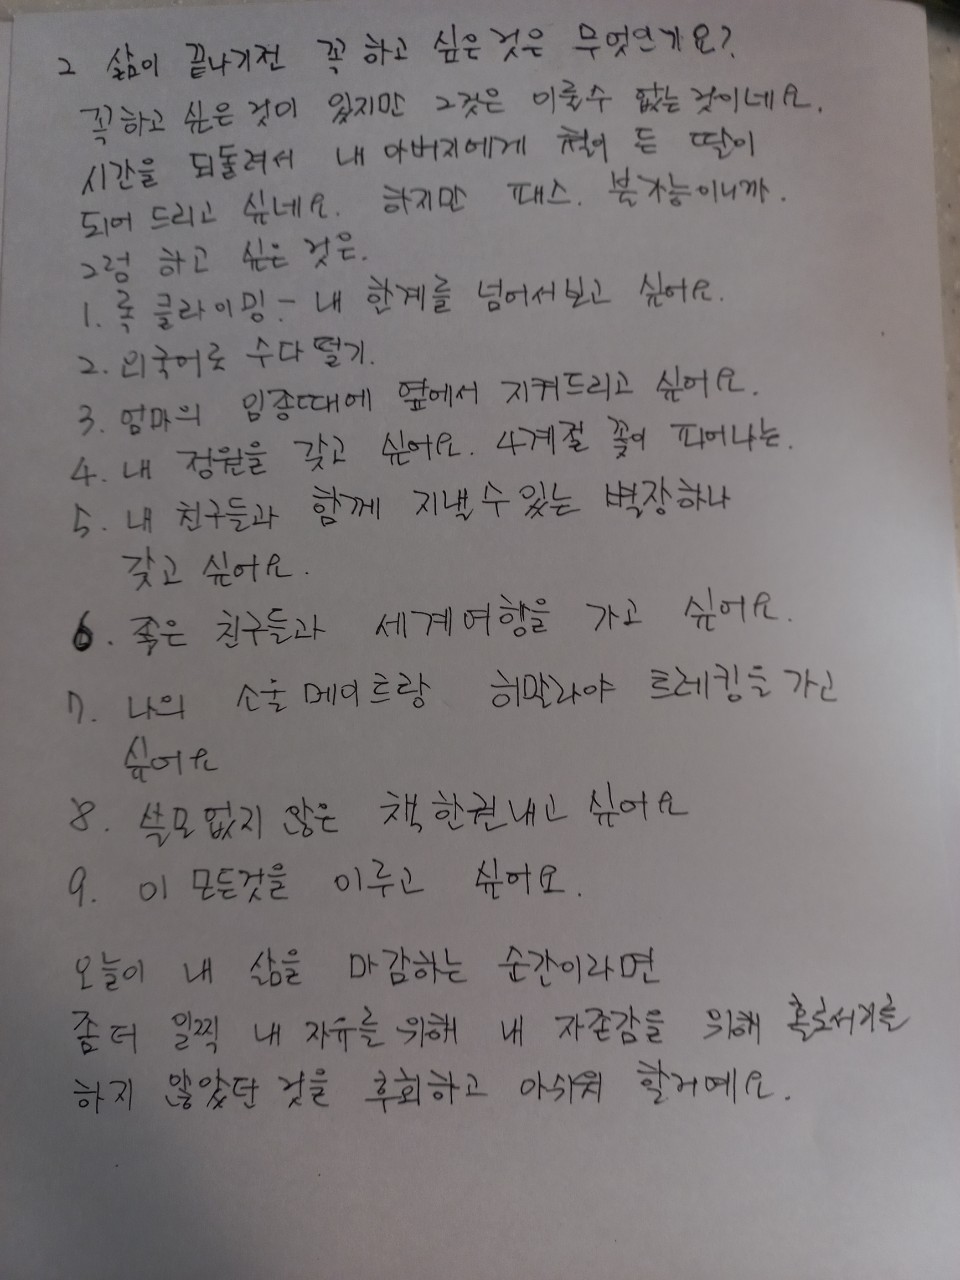 2 삶이 끝나기전 꼭 하고 싶은 것은 무엇인가요?
꼭하고 싶은 것이 있지만 그것은 이룰수 없는 것이네요.
시간을 되돌려서 내 아버지에게 철이 든 딸이
되어 드리고 싶네요. 하지만 패스. 불가능이니까.
그럼 하고 싶은 것은.
1. 록 클라이밍 - 내 한계를 넘어서보고 싶어요.
2. 외국어로 수다 떨기.
3. 엄마의 임종때에 옆에서 지켜드리고 싶어요.
4. 내 정원을 갖고 싶어요. 4계절 꽃이 피어나는.
5. 내 친구들과 함께 지낼수있는 별장하나
갖고 싶어요.
6. 죽은 친구들과 세계여행을 가고 싶어요.
7. 나의 소울메이트랑 히말라야 트레킹을 가고
싶어요
8. 쓸모없지 않은 책한권내고 싶어요
9. 이 모든것을 이루고 싶어요.
오늘이 내 삶을 마감하는 순간이라면
좀더 일찍 내 자유를 위해 내 자존감을 위해 홀로서기를
하지 않았단 것을 후회하고 아쉬워 할거예요.